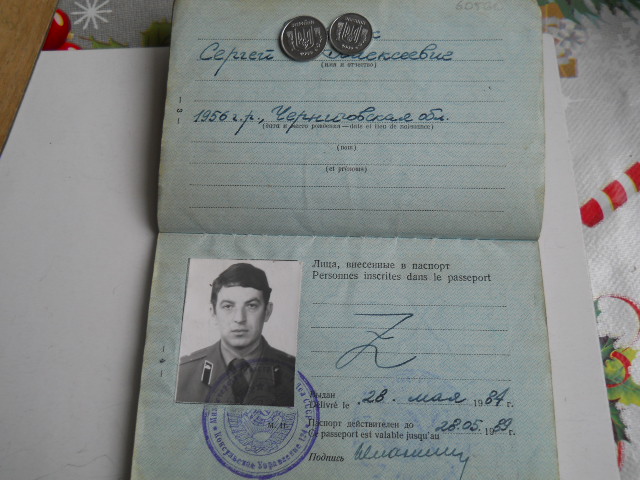 Сергей Алексеевич
(имя и отчество)
- 3 -
1956 г.р., Черниговская обл.
(дата и место рождения — date et lieu de naissance)
(nom)
(et prénoms)
Лица, внесенные в паспорт
Personnes inscrites dans le passeport
Z
- 4 -
Выдан
Délivré le 28. мая 1984 г.
М. П.
Паспорт действителен до
Ce passeport est valable jusqu'au 28.05.1989 г.
Подпись
Консульское Управление